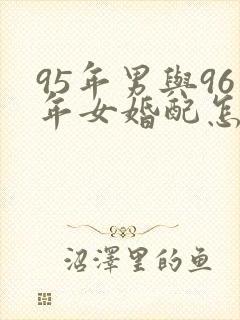 95年男與96
年女婚配怎
沼澤里的鱼